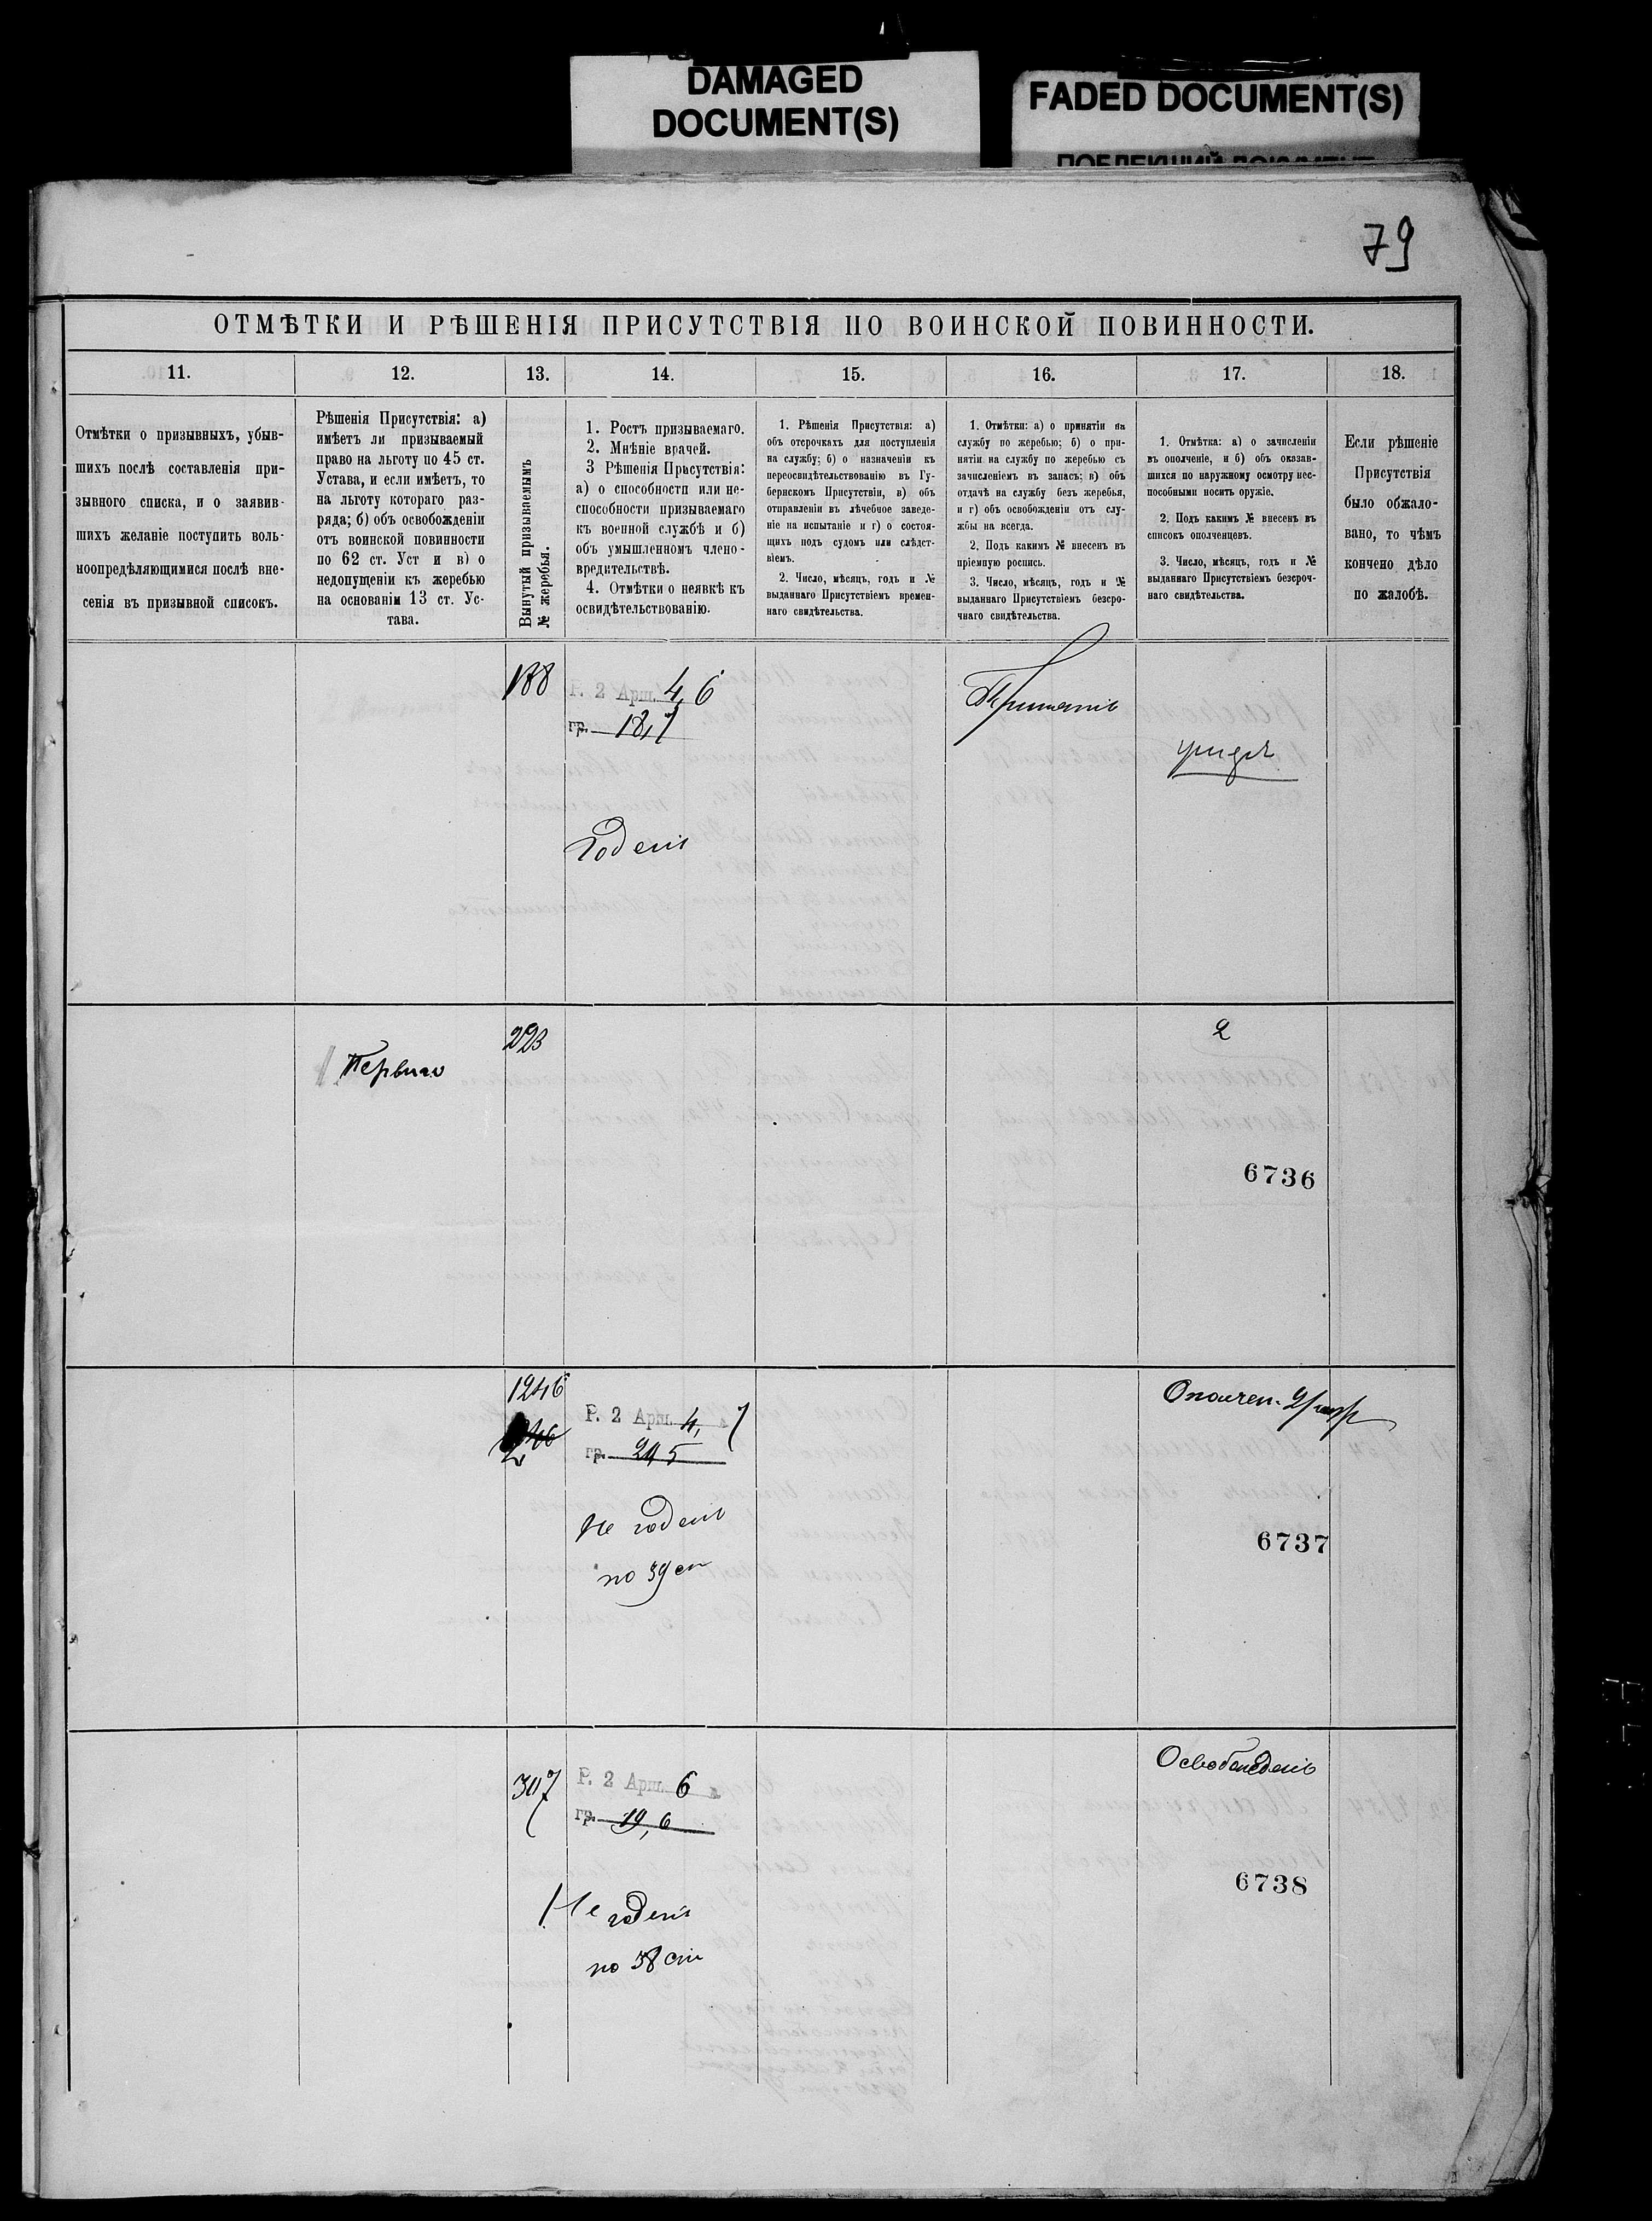 DAMAGED
DOCUMENT(S)
FADED DOCUMENT(S)
79
ОТМѢТКИ И РѢШЕНІЯ ПРИСУТСТВІЯ ПО ВОИНСКОЙ ПОВИННОСТИ.
11.
12.
13.
14.
15.
16.
17.
18.
Отмѣтки о призывныхъ, убыв-
шихъ послѣ составленія при-
зывного списка, и о заявив-
шихъ желаніе поступить воль-
ноопредѣляющимися послѣ вне-
сенія въ призывной списокъ.
Рѣшенія Присутствія: а)
имѣетъ ли призываемый
право на льготу по 45 ст.
Устава, и если имѣетъ, то
на льготу котораго раз-
ряда; б) объ освобожденіи
отъ воинской повинности
по 62 ст. Уст и в) о
недопущеніи къ жеребью
на основаніи 13 ст. Ус-
тава.
Вынутый призываемымъ
№ жеребья.
1. Ростъ призываемаго.
2. Мнѣніе врачей.
3 Рѣшенія Присутствія:
а) о способности или не-
способности призываемаго
къ военной службѣ и б)
объ умышленномъ члено-
вредительствѣ.
4. Отмѣтки о неявкѣ къ
освидѣтельствованію.
1. Рѣшенія Присутствія: а)
объ отсрочкахъ для поступленія
на службу; б) о назначеніи къ
переосвидѣтельствованію въ Гу-
бернскомъ Присутствіи, в) объ
отправленіи въ лѣчебное заведе-
ніе на испытаніе и г) о состоя-
щихъ подъ судомъ или слѣдст-
віемъ.
2. Число, мѣсяцъ, годъ и №
выданнаго Присутствіемъ времен-
наго свидѣтельства.
1. Отмѣтки: а) о принятіи на
службу по жеребью; б) о при-
нятіи на службу по жеребью съ
зачисленіемъ въ запасъ; в) объ
отдачѣ на службу безъ жеребья,
и г) объ освобожденіи отъ слу-
жбы на всегда.
2. Подъ какимъ № внесенъ въ
пріемную роспись.
3. Число, мѣсяцъ, годъ и №
выданнаго Присутствіемъ безсро-
чнаго свидѣтельства.
1. Отмѣтка: а) о зачисленіи
въ ополченіе, и б) объ оказав-
шихся по наружному осмотру нес-
пособными носить оружіе.
2. Подъ какимъ № внесенъ въ
списокъ ополченцевъ.
3. Число, мѣсяцъ, годъ и №
выданнаго Присутствіемъ безсроч-
наго свидѣтельства.
Если рѣшеніе
Присутствія
было обжало-
вано, то чѣмъ
кончено дѣло
по жалобѣ.
188
Р. 2 Арш. 4,6
гр. 18,7
Годенъ
Принятъ
223
Перваго
2
6736
1246
Р. 2 Арш. 4, 7
гр. 20 5
Не годенъ
по 39 ст
Ополчен. 2 разр
6737
307
Р. 2 Арш. 6
гр. 19,6
Не годенъ
по 38 ст
Освобожденъ
6738